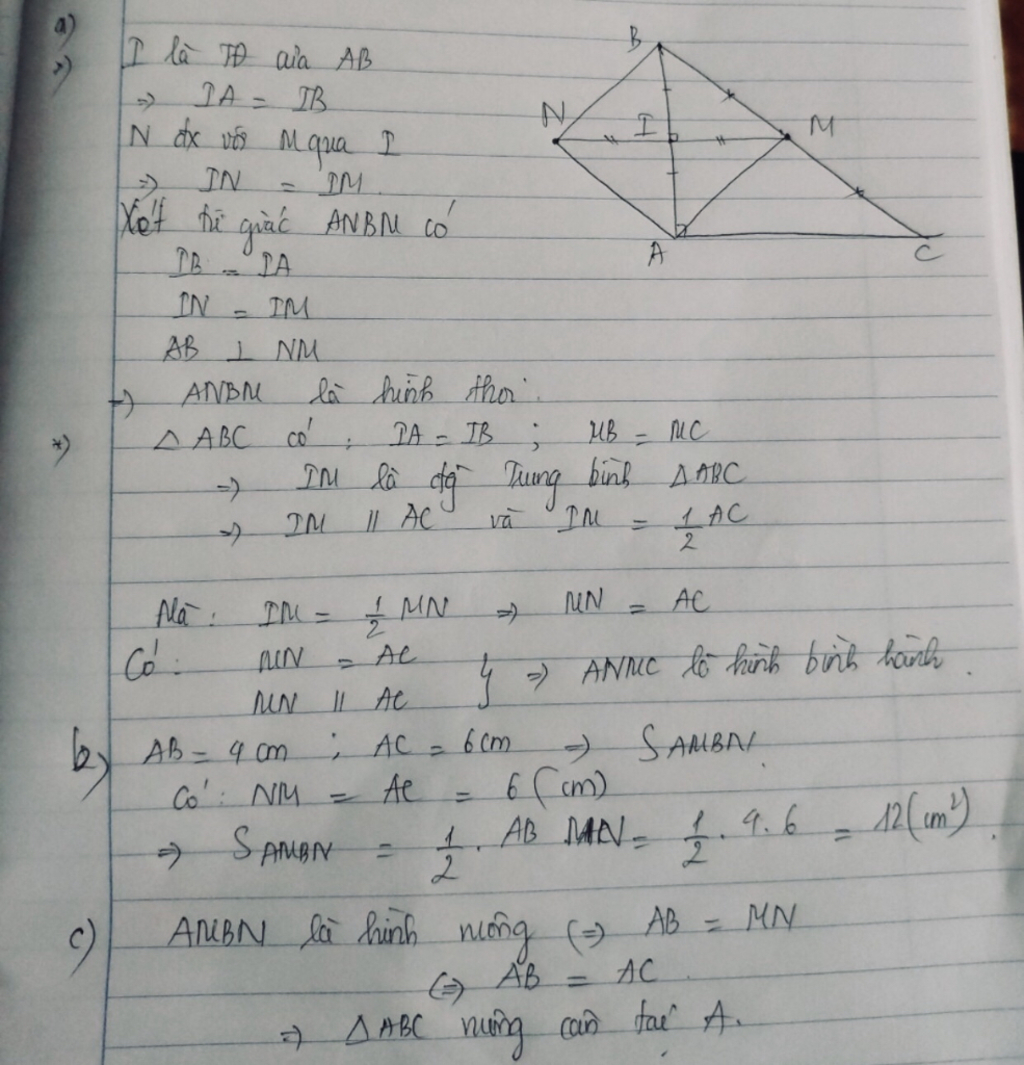 a)
*) I là TĐ của AB
=> IA = IB
N đx với M qua I
=> IN = IM
Xét tứ giác ANBM có
IB = IA
IN = IM
AB ⊥ NM
=> ANBM là hình thoi.
*) Δ ABC có : IA = IB ; MB = MC
=> IM là đg Trung bình Δ ABC
=> IM // AC và IM = 1/2 AC
Mà : IM = 1/2 MN => MN = AC
Có : MN = AC
MN // AC } => ANMC là hình bình hành.
b) AB = 4 cm ; AC = 6 cm => S AMBN
Có : NM = AC = 6 (cm)
=> S AMBN = 1/2 . AB MN = 1/2 . 4 . 6 = 12 (cm²).
c) AMBN là hình vuông <=> AB = MN
<=> AB = AC
=> Δ ABC vuông cân tại A.
B
N
I
M
A
C